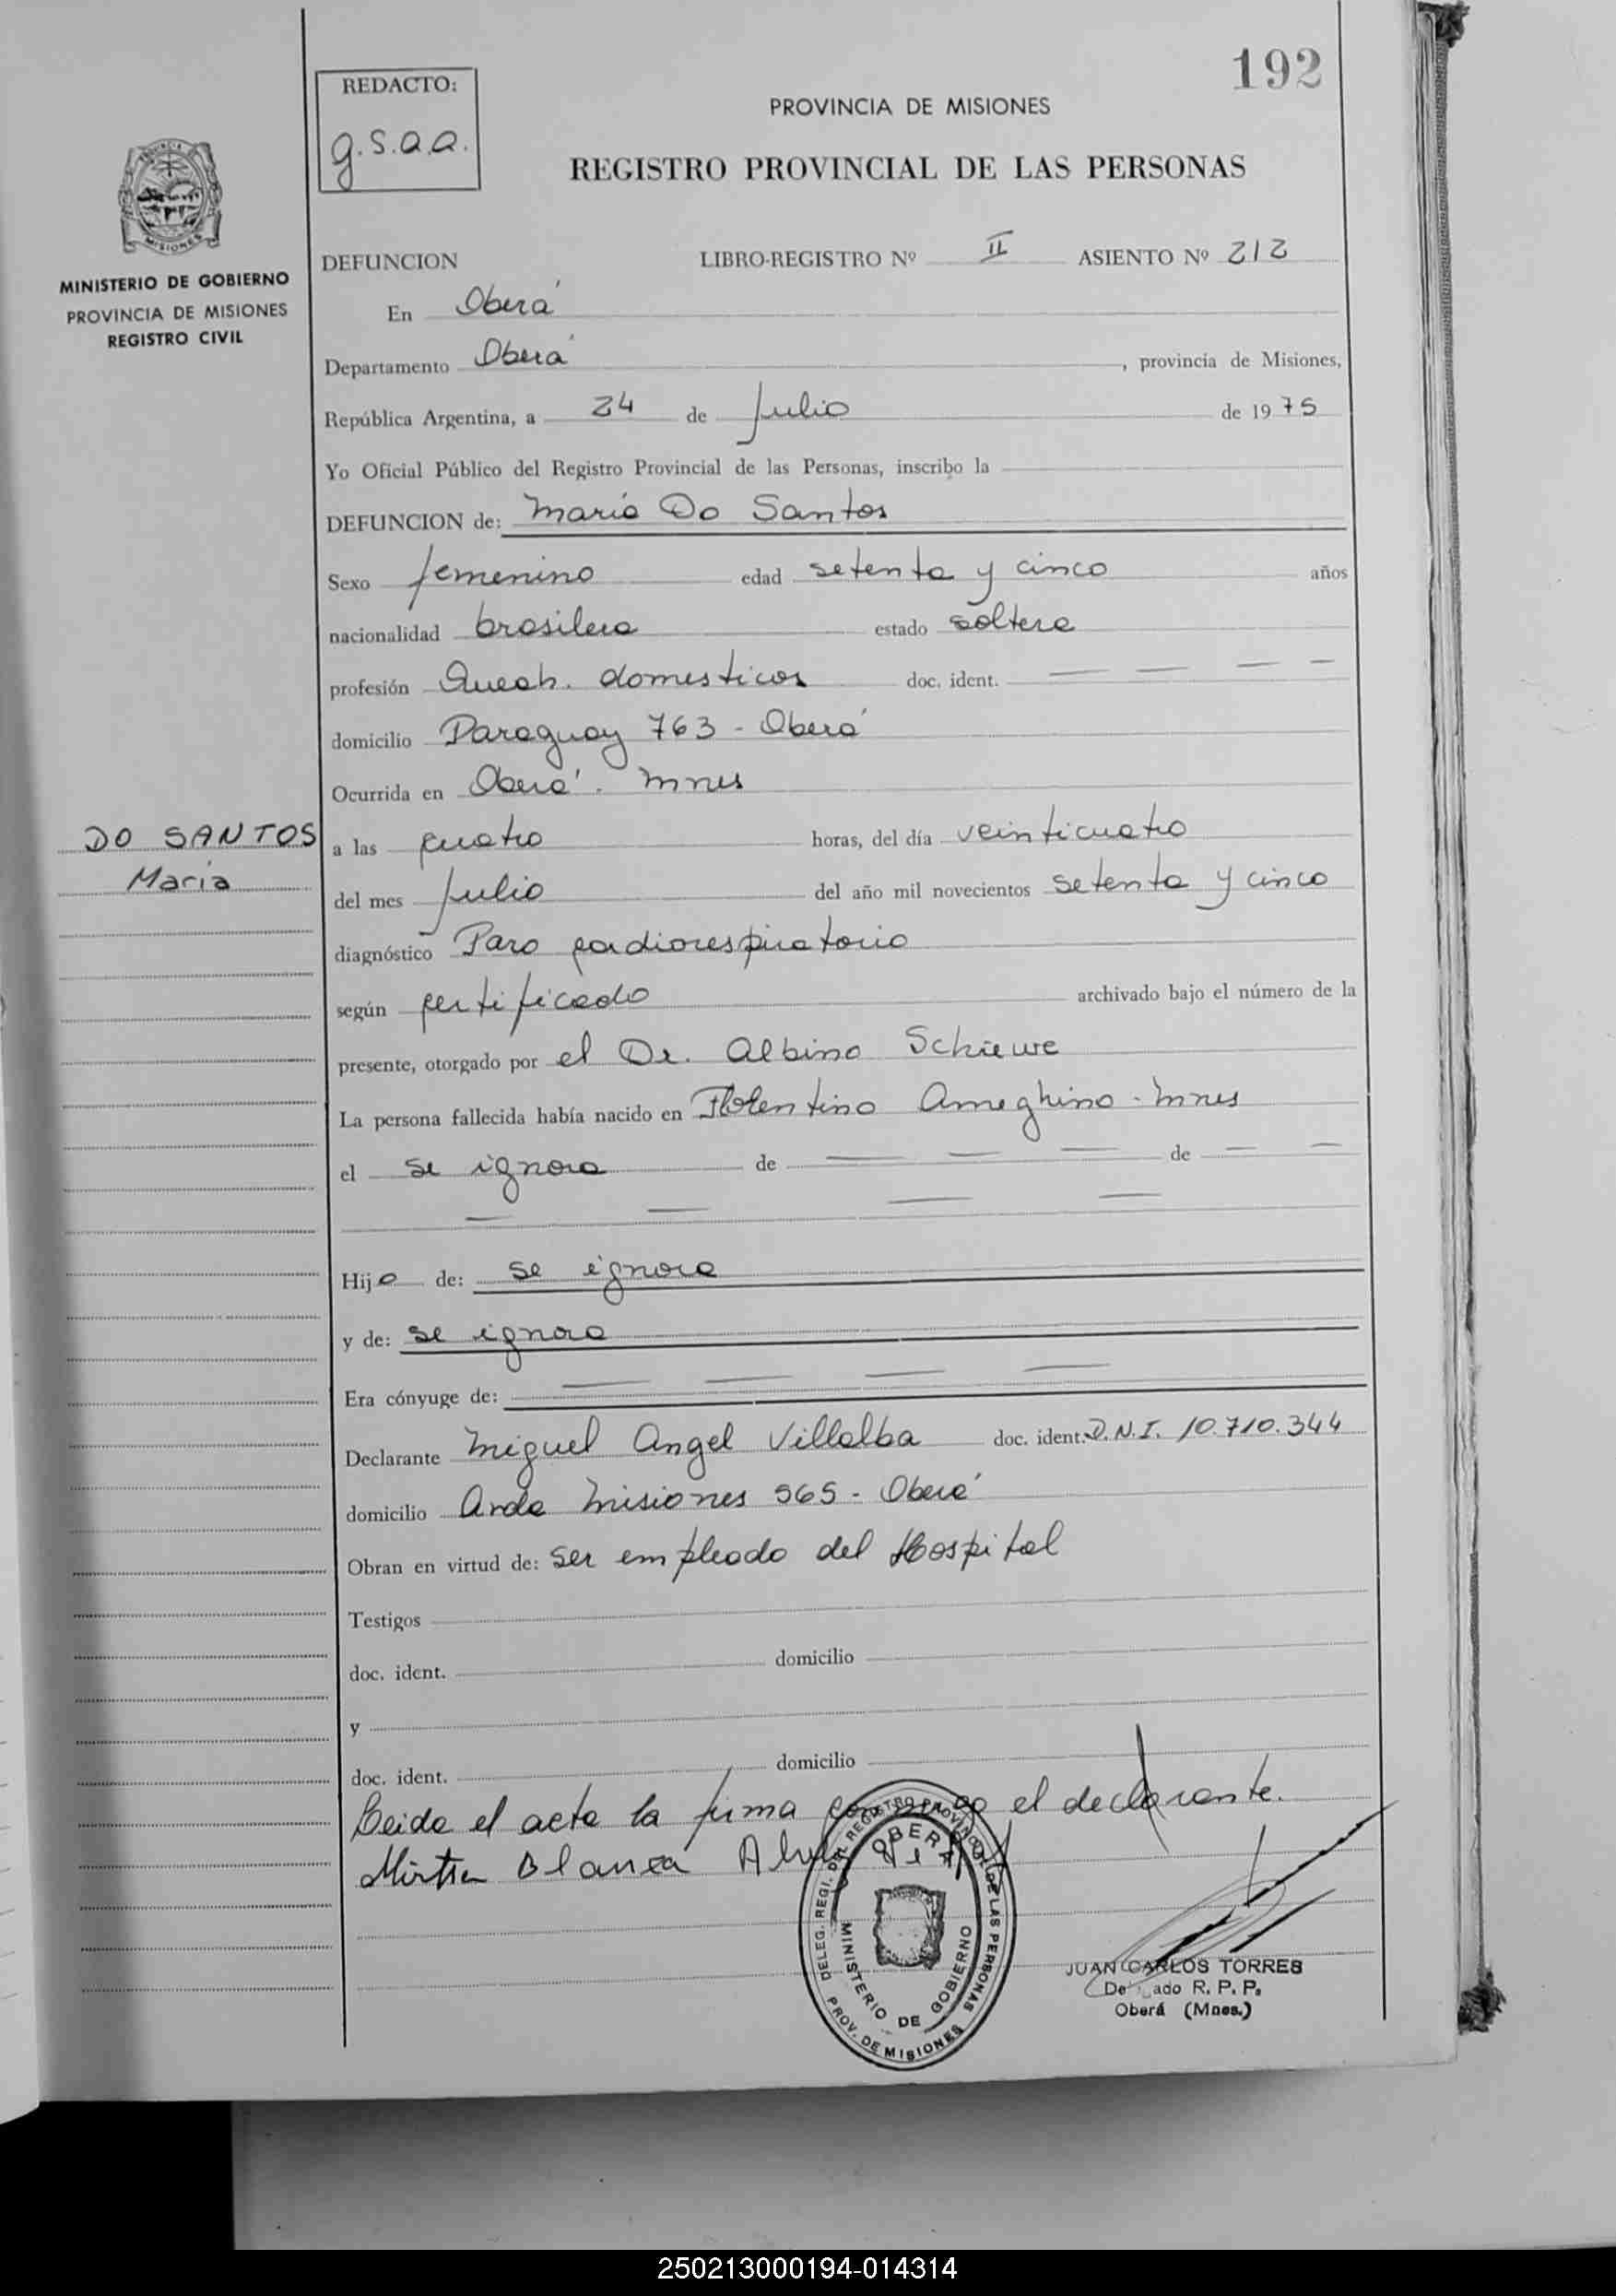 192
REDACTO:
g.s.a.a.
PROVINCIA DE MISIONES
REGISTRO PROVINCIAL DE LAS PERSONAS
MISIONES
MINISTERIO DE GOBIERNO
PROVINCIA DE MISIONES
REGISTRO CIVIL
DEFUNCION LIBRO-REGISTRO Nº II ASIENTO Nº 212
En Oberá
Departamento Oberá, provincia de Misiones,
República Argentina, a 24 de Julio de 1975
Yo Oficial Público del Registro Provincial de las Personas, inscribo la
DEFUNCION de: Maria Do Santos
Sexo femenino edad setenta y cinco años
nacionalidad brasilera estado soltera
profesión Queah. domesticos doc. ident. — — — —
domicilio Paraguay 763 - Oberá
Ocurrida en Oberá. Mnes
DO SANTOS
Maria
a las cuatro horas, del día veinticuatro
del mes Julio del año mil novecientos setenta y cinco
diagnóstico Paro cardiorespiratorio
según certificado archivado bajo el número de la
presente, otorgado por el Dr. Albino Schiewe
La persona fallecida había nacido en Florentino Ameghino - Mnes
el se ignora de — — — de — —
— — — —
Hija de: se ignora
y de: se ignora
Era cónyuge de: — — — —
Declarante Miguel Angel Villalba doc. ident. D.N.I. 10.710.344
domicilio Avda Misiones 565 - Oberá
Obran en virtud de: ser empleado del Hospital
Testigos
doc. ident. domicilio
y
doc. ident. domicilio
Leida el acta la firma conmigo el declarante.
Mirtha Blanca
DELEG. REGI. DEL REGISTRO PROVINCIAL DE LAS PERSONAS
OBERA
MINISTERIO DE GOBIERNO
PROV. DE MISIONES
JUAN CARLOS TORRES
R. P. P.
Oberá (Mnes.)
250213000194-014314